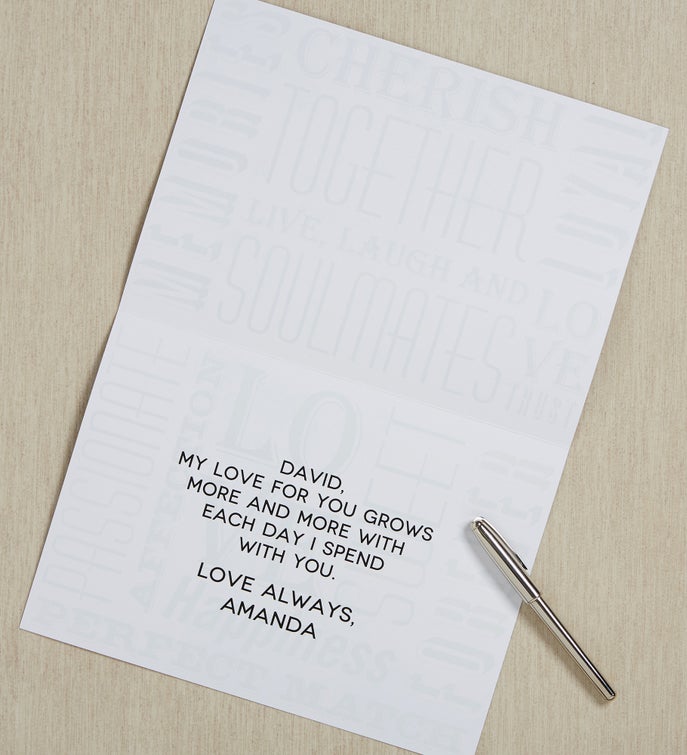 MEMORIES
CHERISH
TOGETHER
LOYAL
LIVE, LAUGH AND LO
VE
SOULMATES
TRUST
PASSIONATE
AFFECTION
LO
SWEET
FOREVER
DAVID,
MY LOVE FOR YOU GROWS
MORE AND MORE WITH
EACH DAY I SPEND
WITH YOU.
LOVE ALWAYS,
AMANDA
Happiness
PERFECT MATCH